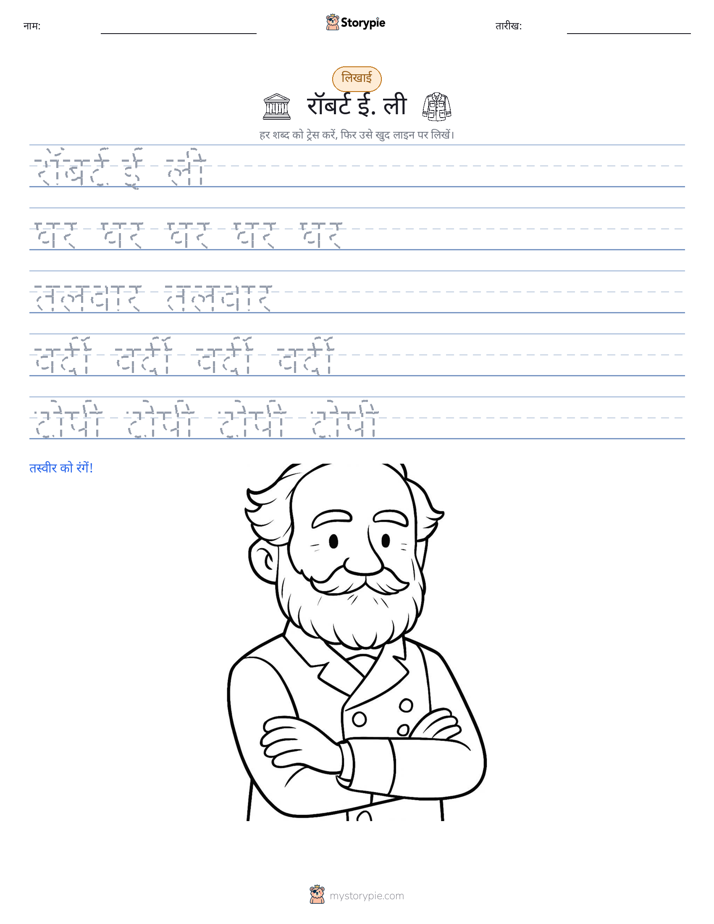 नाम:
Storypie
तारीख:
लिखाई
रॉबर्ट ई. ली
हर शब्द को ट्रेस करें, फिर उसे खुद लाइन पर लिखें।
रॉबर्ट ई ली
घर घर घर घर घर
तलवार तलवार
वर्दी वर्दी वर्दी वर्दी
टोपी टोपी टोपी टोपी
तस्वीर को रंगें!
mystorypie.com